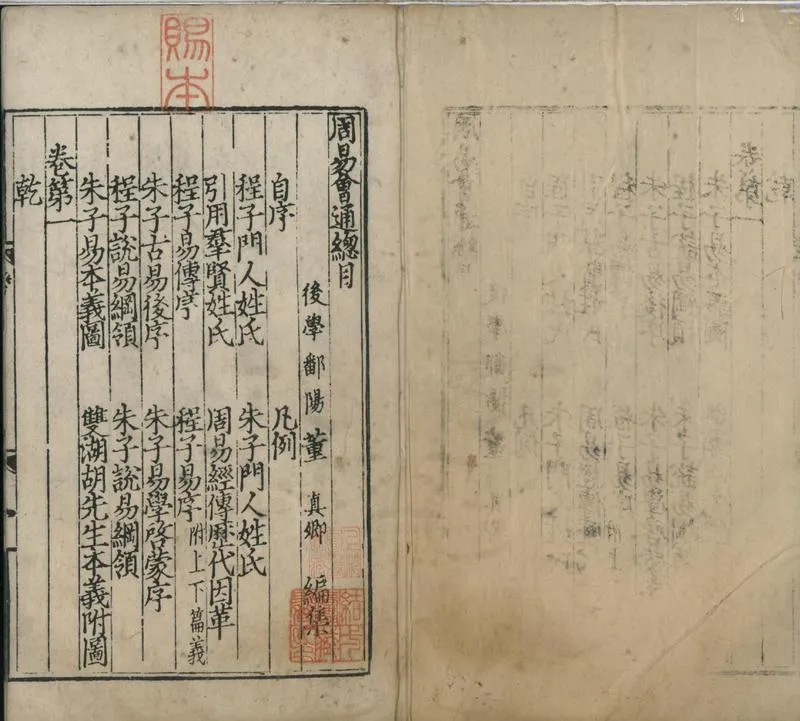 賜本
周易會通緫目
後學鄱陽董真卿編集
自序 凡例
程子門人姓氏 朱子門人姓氏
引用羣賢姓氏 周易經傳歷代因革
程子易傳序 程子易序附上下篇義
朱子古易後序 朱子易學啓蒙序
程子說易綱領 朱子說易綱領
朱子易本義圖 雙湖胡先生本義附圖
卷第一
乾